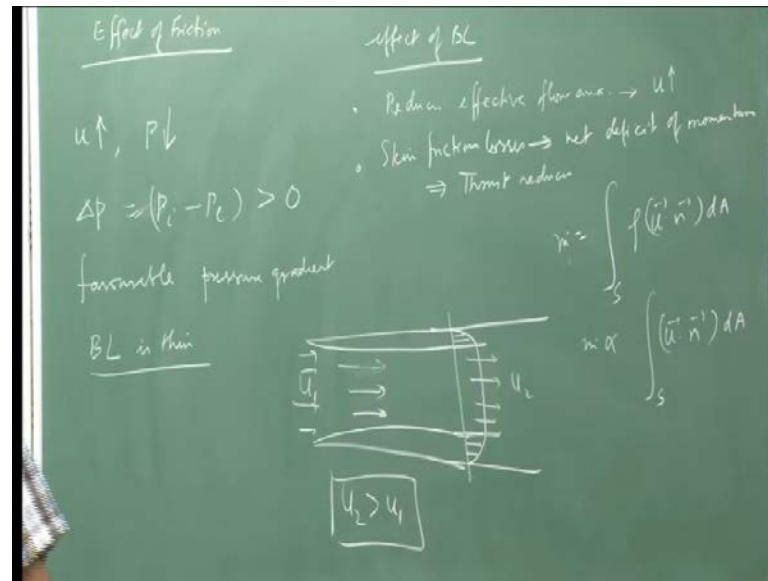 Effect of Friction
u↑, P↓
Δp = (Pi - Pe) > 0
favourable pressure gradient
BL is thin
effect of BL
• Reduces effective flow area. → u↑
• Skin friction losses → net deficit of momentum
⇒ Thrust reduces
ṁ = ∫S ρ(u⃗·n⃗) dA
ṁ ∝ ∫S (u⃗·n⃗) dA
U1
U2
U2 > U1